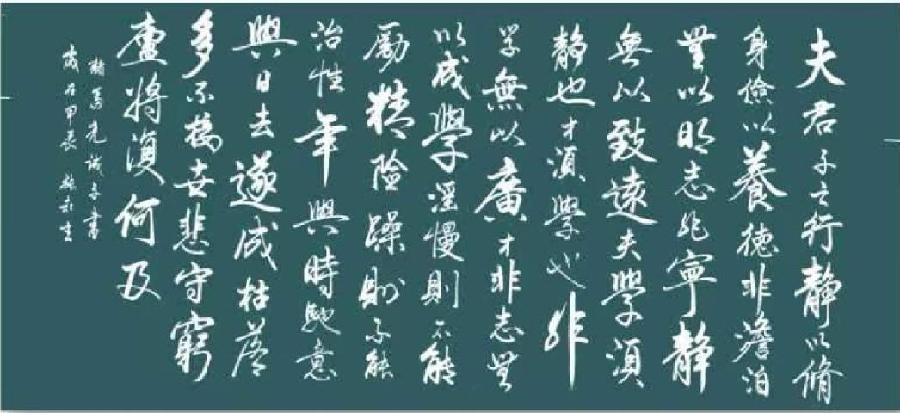 夫君子之行静以脩
身儉以養德非澹泊
無以明志非寧静
無以致遠夫學須
静也才須學也非
学無以廣才非志無
以成學淫慢則不能
勵精险躁則不能
治性年與時馳意
與日去遂成枯落
多不接世悲守窮
廬將復何及
諸葛亮誡子書
歲在甲辰